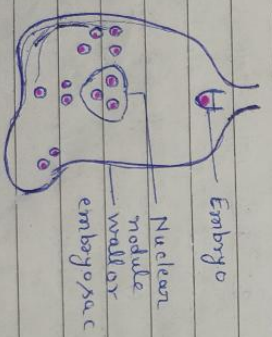 Embryo
Nuclear
nodule
wall or
embryo sac